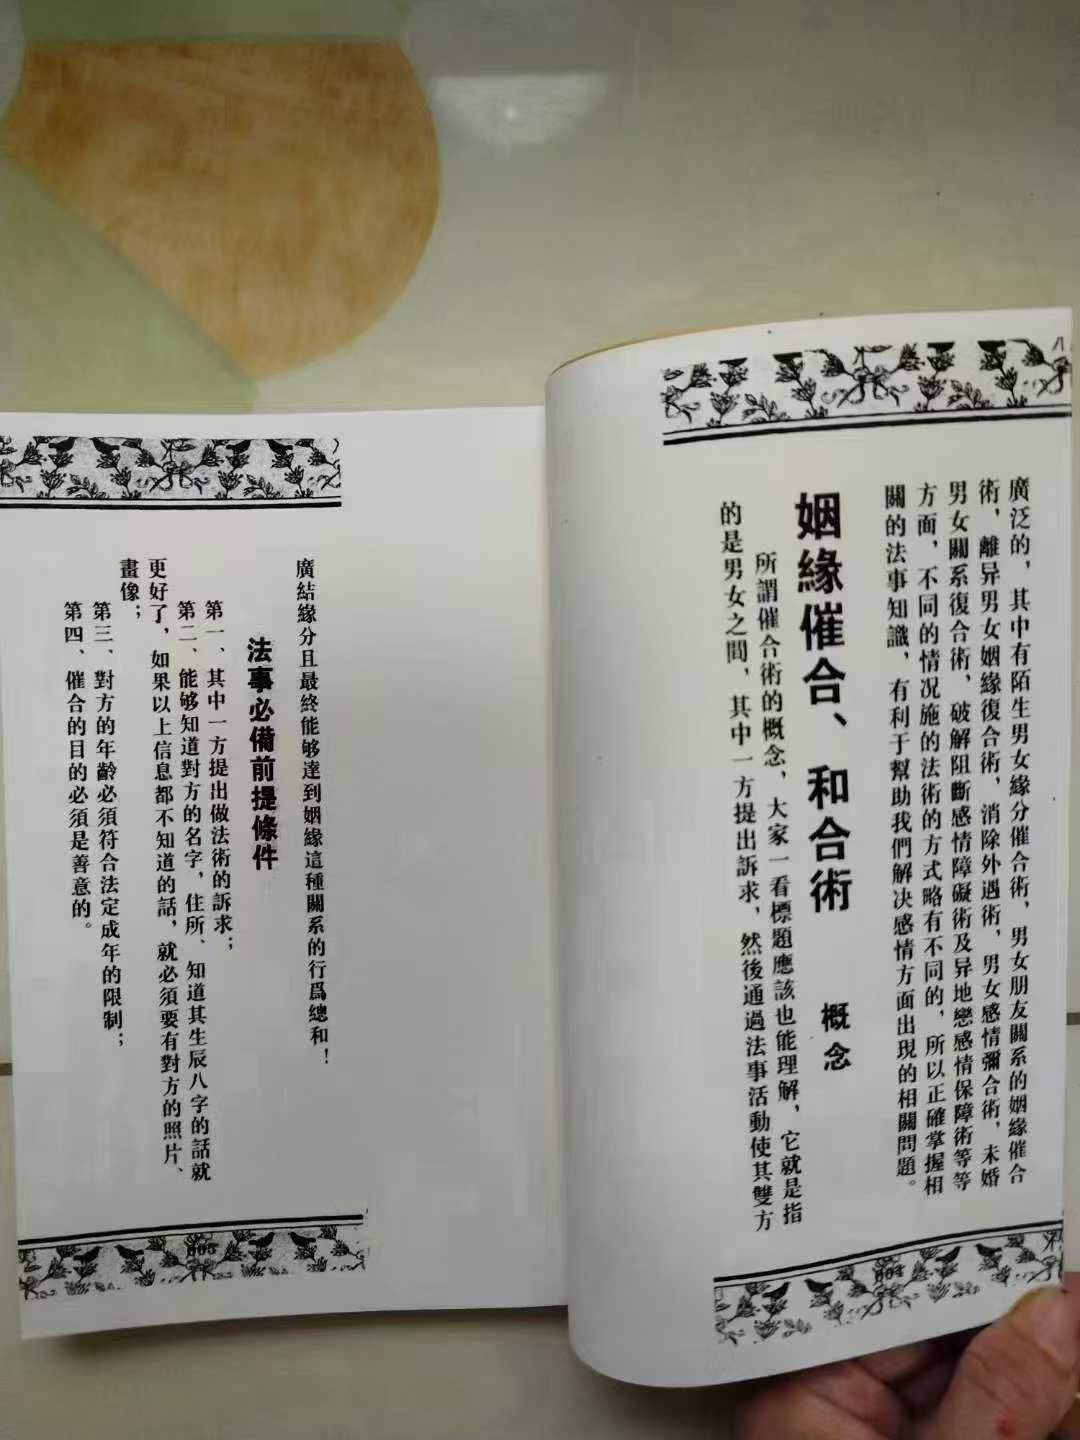 廣泛的，其中有陌生男女緣分催合術，男女朋友關系的姻緣催合
術，離异男女姻緣復合術，消除外遇術，男女感情彌合術，未婚
男女關系復合術，破解阻斷感情障礙術及异地戀感情保障術等等
方面，不同的情况施的法術的方式略有不同的，所以正確掌握相
關的法事知識，有利于幫助我們解决感情方面出現的相關問題。
姻緣催合、和合術 概念
所謂催合術的概念，大家一看標題應該也能理解，它就是指
的是男女之間，其中一方提出訴求，然後通過法事活動使其雙方
004
廣結緣分且最終能够達到姻緣這種關系的行爲總和！
法事必備前提條件
第一、其中一方提出做法術的訴求；
第二、能够知道對方的名字，住所、知道其生辰八字的話就
更好了，如果以上信息都不知道的話，就必須要有對方的照片、
畫像；
第三、對方的年齡必須符合法定成年的限制；
第四、催合的目的必須是善意的。
005